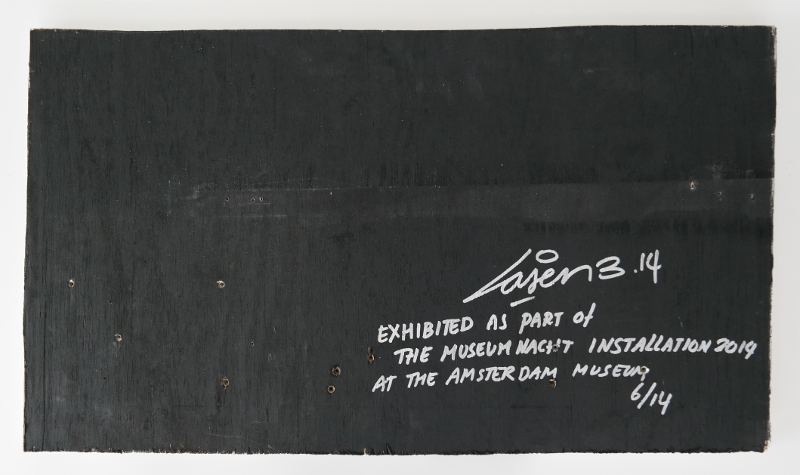 Laser 3.14
EXHIBITED AS PART of
THE MUSEUM NACHT INSTALLATION 2019
AT THE AMSTERDAM MUSEUM
6/14